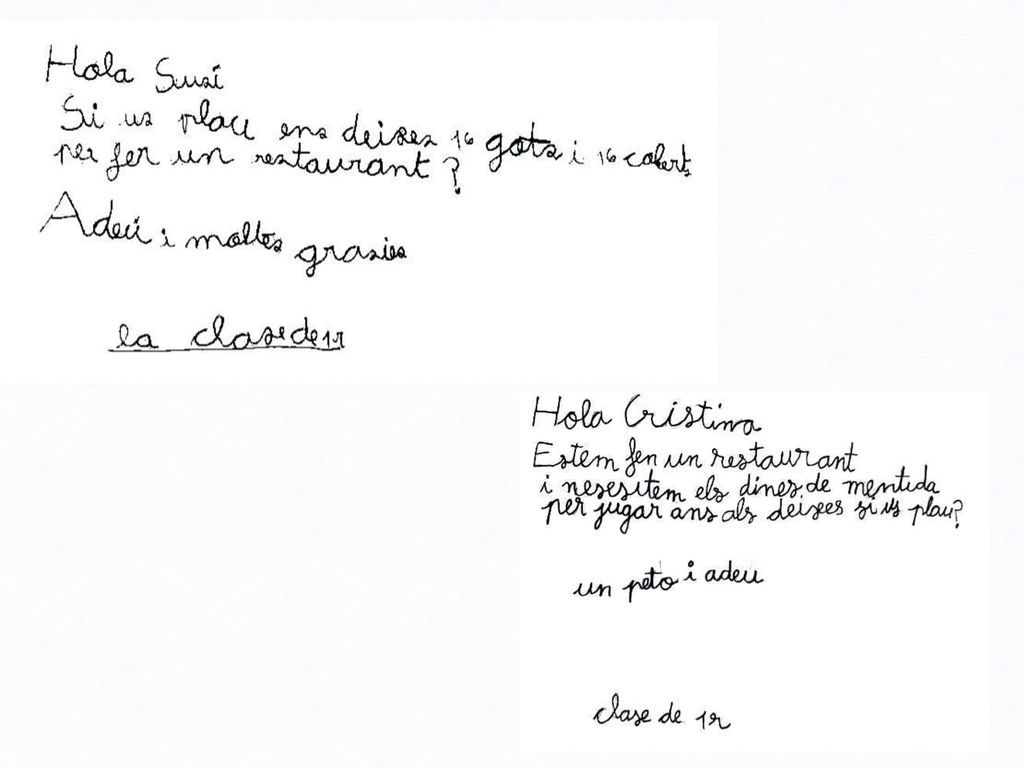 Hola Susi
Si us place ens deixes 16 gots i 16 coberts
per fer un restaurant?
Adeu i moltes grasies
la clase de 1r
Hola Cristina
Estem fen un restaurant
i nesesitem els dines de mentida
per jugar ans als deixes si us plau?
un peto i adeu
clase de 1r